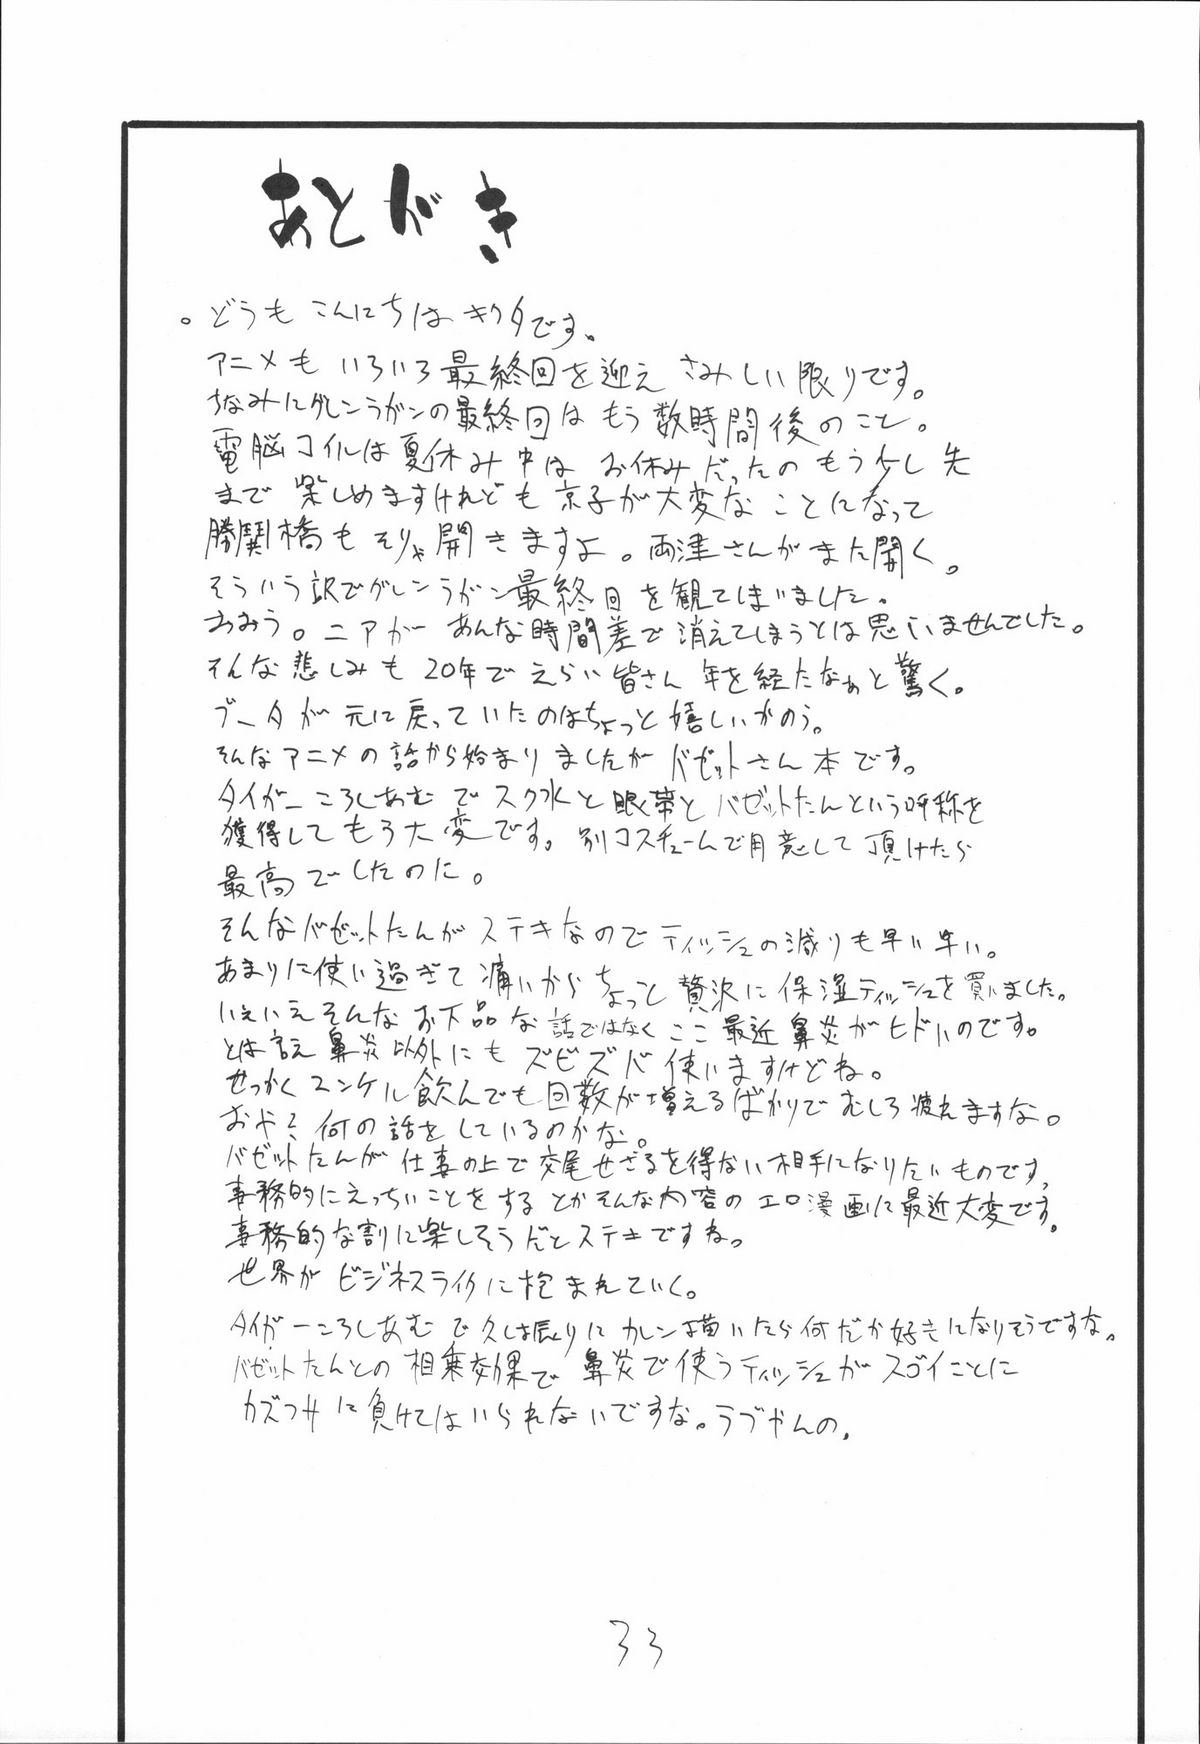 あとがき
。どうも こんにちは キクタです。
アニメも いろいろ最終回を迎え さみしい限りです。
ちなみにグレンラガンの最終回は もう数時間後のこと。
電脳コイルは夏休み中は お休みだったの もう少し先
まで 楽しめますけれども 京子が大変な ことになって
勝鬨橋も そりゃ開きますよ。両津さんがまた開く。
そういう訳でグレンラガン最終回を観てしまいました。
おおう。ニアが あんな時間差で 消えてしまうとは思いませんでした。
そんな悲しみも 20年でえらい皆さん 年を経たなぁと驚く。
ブータが 元に戻っていたのはちょっと嬉しいかのう。
そんなアニメの話から始まりましたが バゼットさん本です。
タイガーころしあむでスク水と眼帯とバゼットたんという呼称を
獲得してもう大変です。別コスチュームで用意して頂けたら
最高でしたのに。
そんなバゼットたんが ステキなので ティッシュの減りも早い早い。
あまりに使い過ぎて 痛いからちょっと 贅沢に保湿ティッシュを買いました。
いえいえそんな お下品な話ではなく ここ最近鼻炎がヒドいのです。
とは言え 鼻炎以外にも ズビズバ使いますけどね。
せっかくユンケル飲んでも回数が増えるばかりで むしろ疲れますな。
おや? 何の話をしているのかな。
バゼットたんが 仕事の上で交尾せざるを得ない相手になりたいものです。
事務的にえっちいことをする とかそんな内容の エロ漫画に最近大変です。
事務的な割に楽しそうだとステキですね。
世界が ビジネスライクに包まれていく。
タイガーころしあむで久し振りに カレン描いたら何だか好きになりそうですな。
バゼットたんとの 相乗効果で 鼻炎で使うティッシュが スゴイことに
カズフサに負けてはいられないですな。ラブやんの。
33